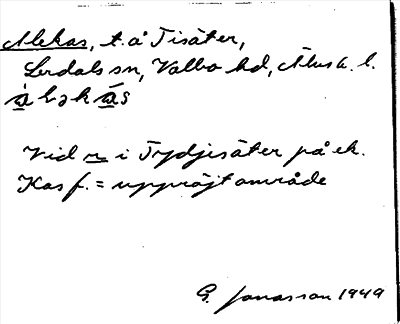 Alekas, t. å Tisäter,
Lerdals sn, Valbo hd, Älvsb. l.
Vid n i Tydjisäter på ek.
Kas f. = uppröjt område
G. Jonasson 1949